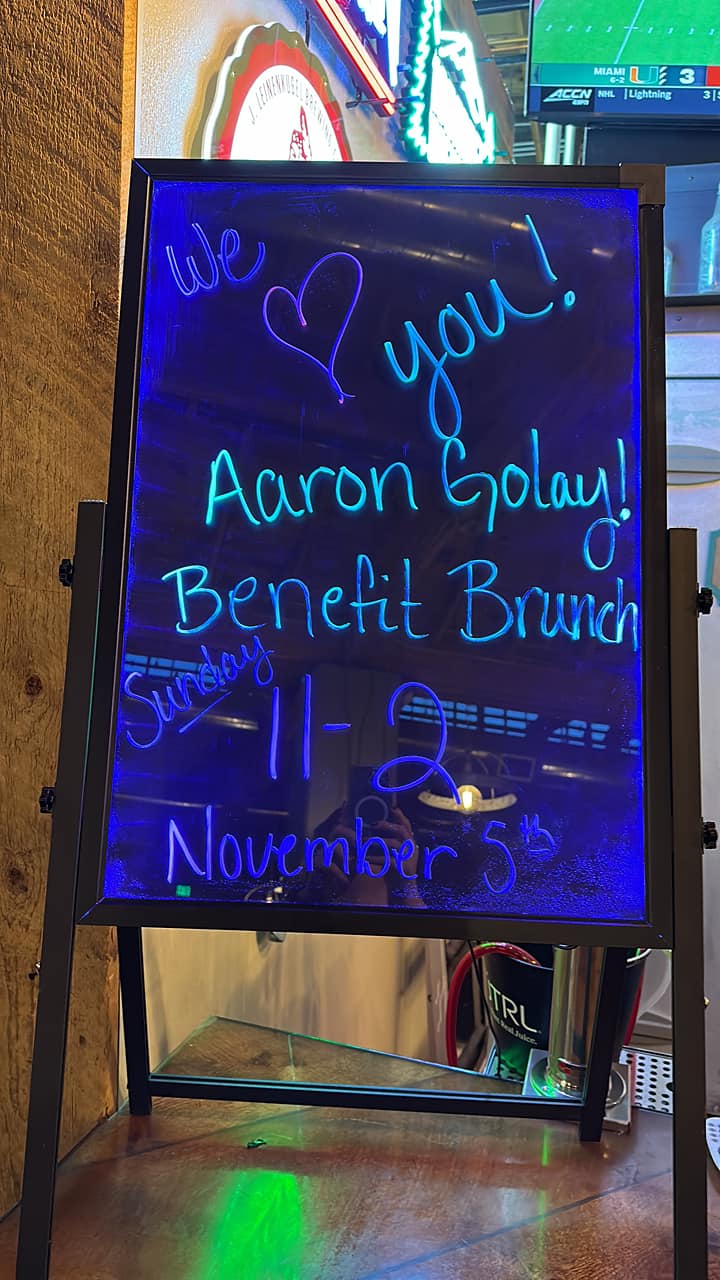 J. LEINENKUGEL BREWING
MIAMI 6-2 U 3
ACCN NHL | Lightning 3
We ♥ you!
Aaron Golay!
Benefit Brunch
Sunday
11-2
November 5th
TRL
Real Juice.